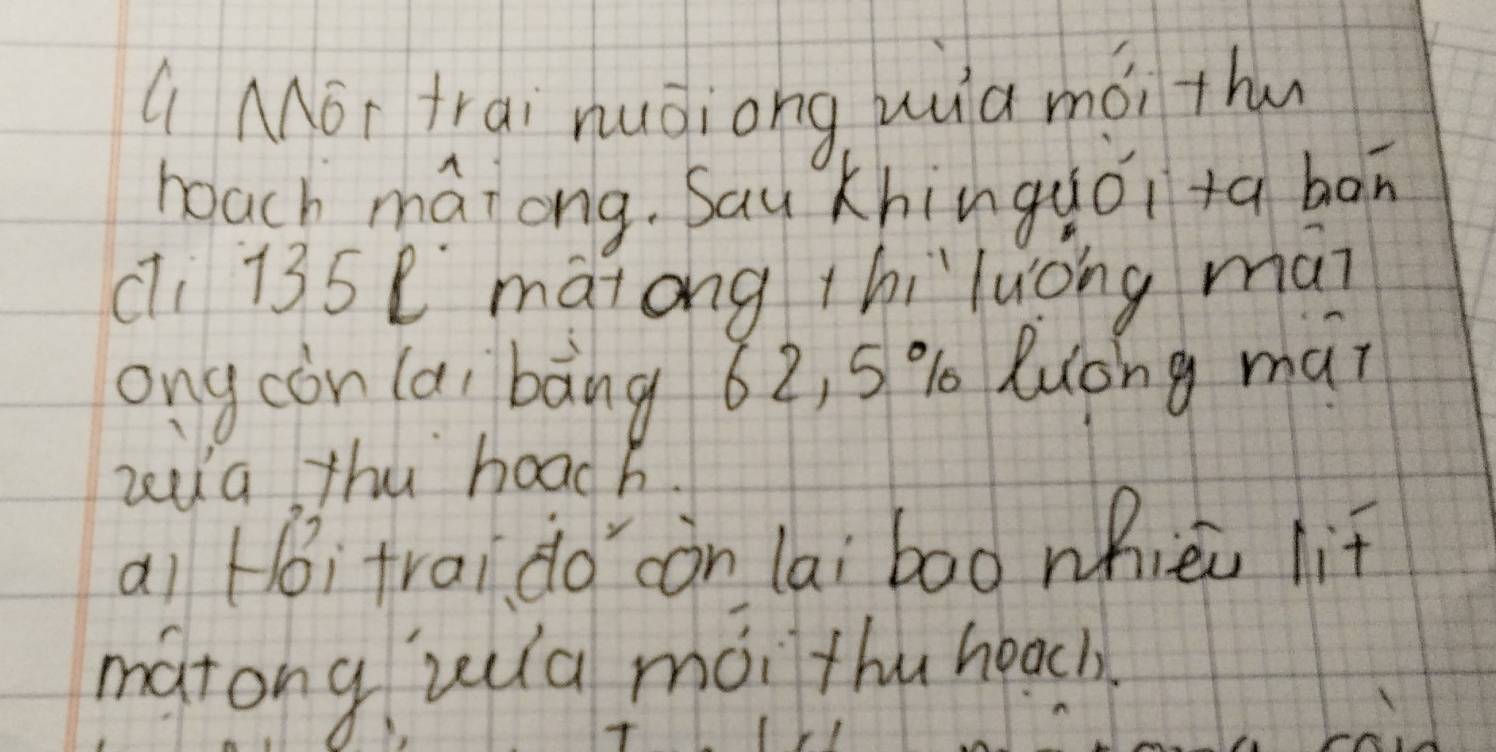 4 Một trại nuôi ong vừa mới thu
hoạch mật ong. Sau khi người ta bán
đi 135l mật ong thì lượng mật
ong còn lại bằng 62,5% lượng mật
vừa thu hoạch.
a) Hỏi trại đó còn lại bao nhiêu lít
mật ong vừa mới thu hoạch.